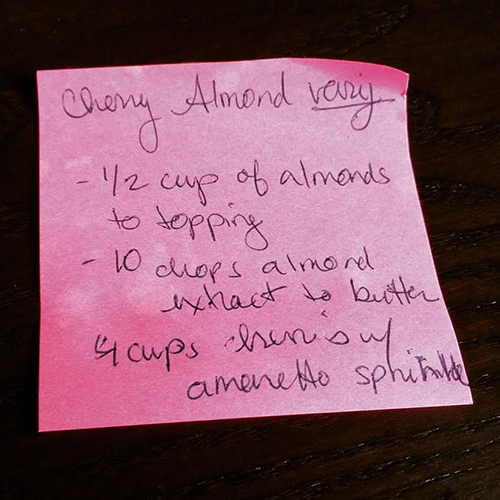 Cherry Almond vary
- 1/2 cup of almonds
to topping
- 10 drops almond
extract to butter
4 cups w/
amaretto